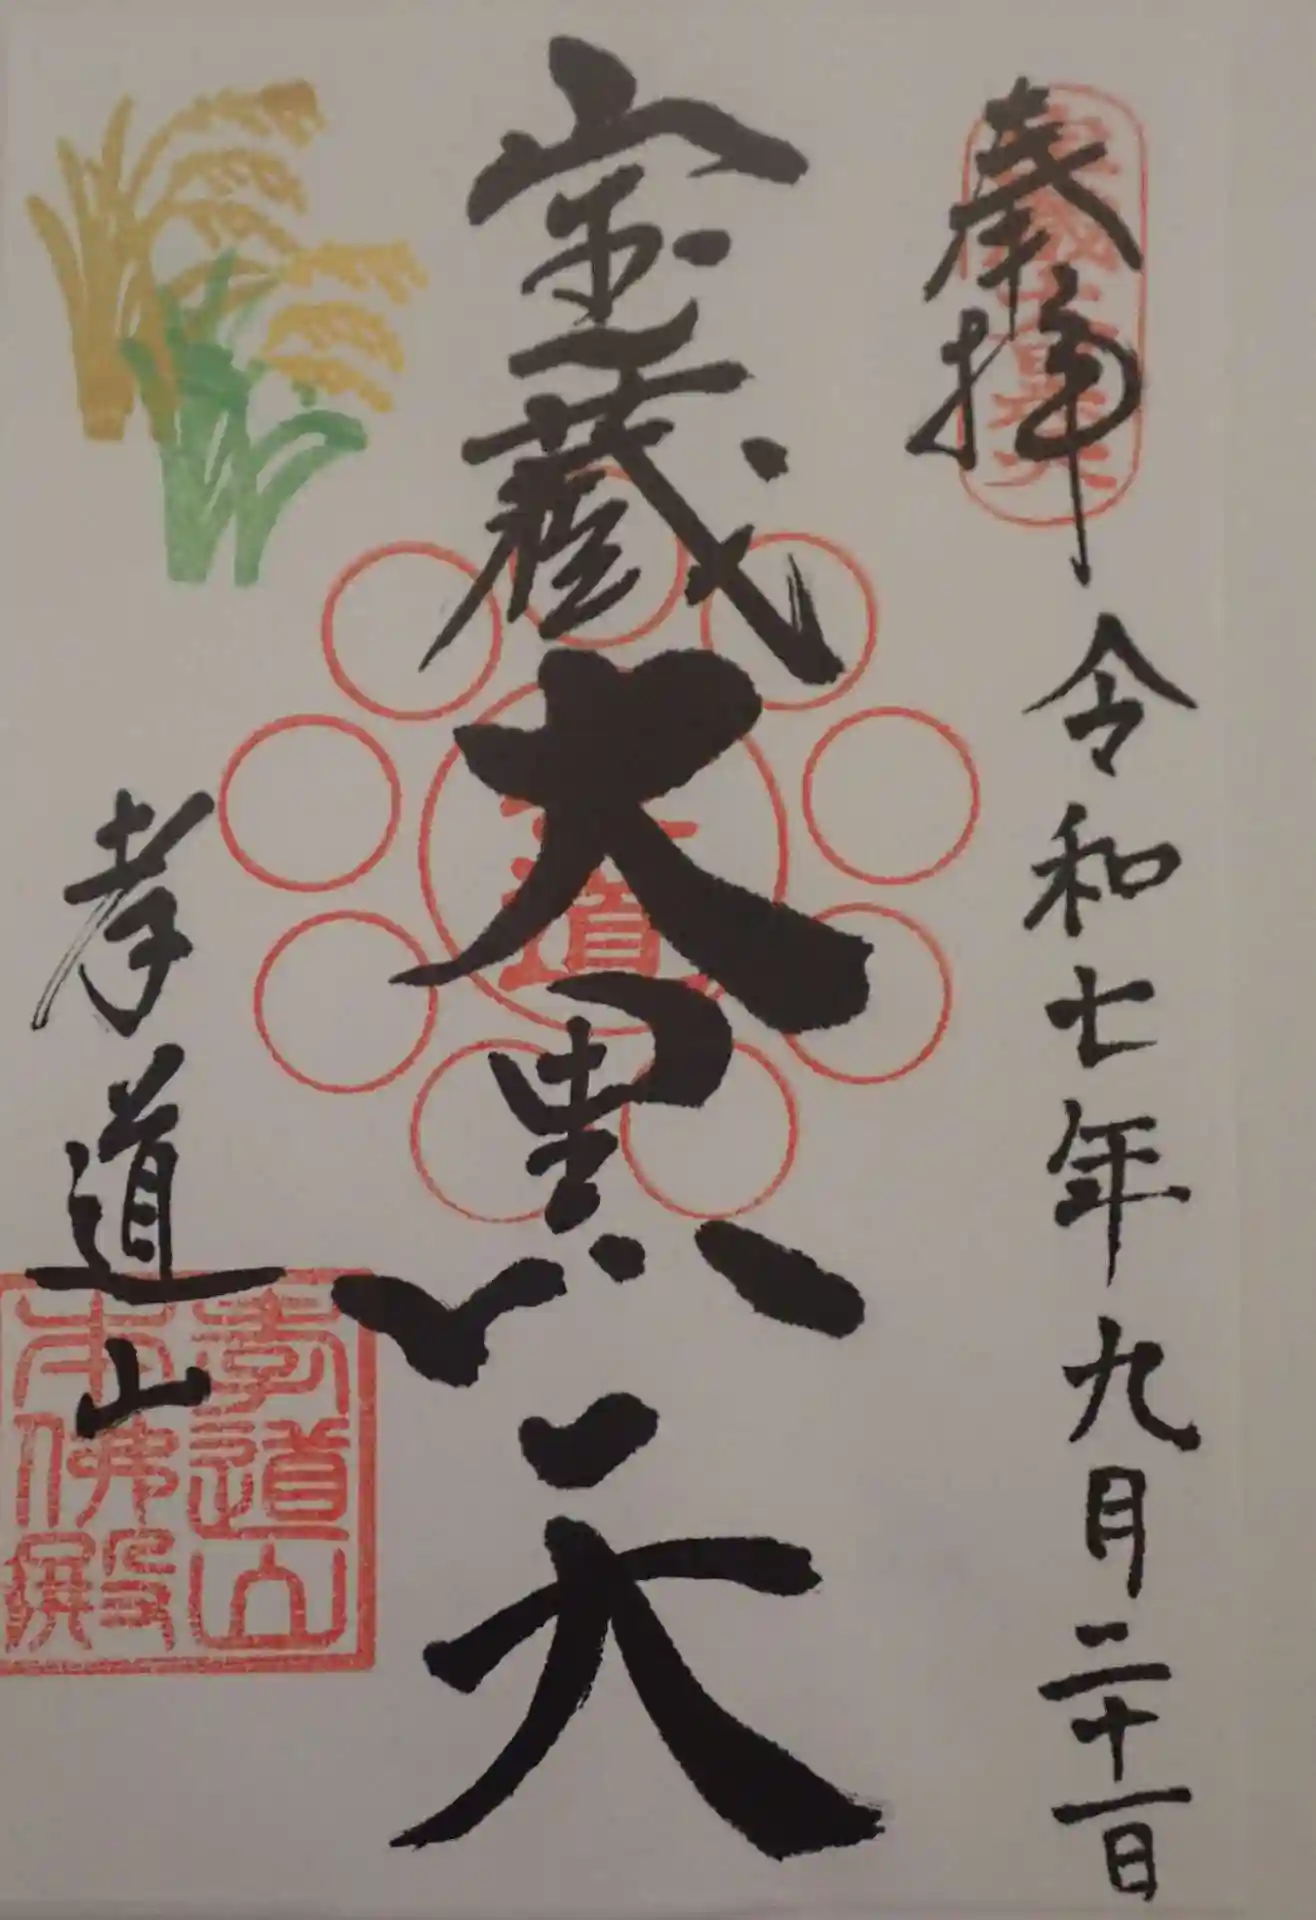 奉拝
令和七年九月二十一日
宝蔵大黒天
孝道
孝道山
孝道山
本佛殿